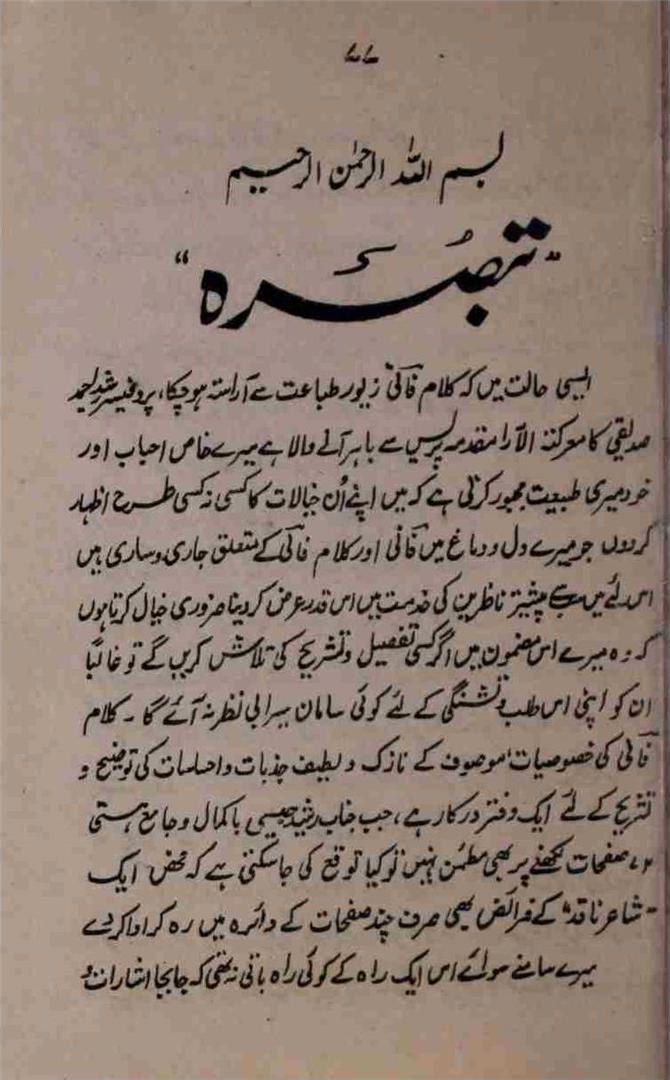 ۷۷
بسم اللہ الرحمٰن الرحیم
"تبصُرہ"
ایسی حالت میں کہ کلام فانی زیور طباعت سے آراستہ ہوچکا، پروفیسر رشید احمد
صدیقی کا معرکتہ الآرا مقدمہ پریس سے باہر آنے والا ہے میرے خاص احباب اور
خود میری طبیعت مجبور کرتی ہے کہ میں اپنے اُن خیالات کا کسی نہ کسی طرح اظہار
کردوں جو میرے دل و دماغ میں فانی اور کلام فانی کے متعلق جاری و ساری ہیں
اس لئے میں سب سے پیشتر ناظرین کی خدمت میں اس قدر عرض کر دینا ضروری خیال کرتا ہوں
کہ وہ میرے اس مضمون میں اگر کسی تفصیل و تشریح کی تلاش کریں گے تو غالبًا
ان کو اپنی اس طلب و تشنگی کے لئے کوئی سامان سیرابی نظر نہ آئے گا۔ کلام
فانی کی خصوصیات، موصوف کے نازک و لطیف جذبات و احساسات کی توضیح و
تشریح کے لئے ایک دفتر درکار ہے، جب جناب رشید جیسی باکمال و جامع ہستی
صفحات لکھنے پر بھی مطمئن نہیں تو کیا توقع کی جاسکتی ہے کہ محض ایک
"شاعر ناقد" کے فرائض بھی صرف چند صفحات کے دائرہ میں رہ کر ادا کردے
میرے سامنے سوائے اس ایک راہ کے کوئی راہ باقی نہ تھی کہ جابجا اشارات و